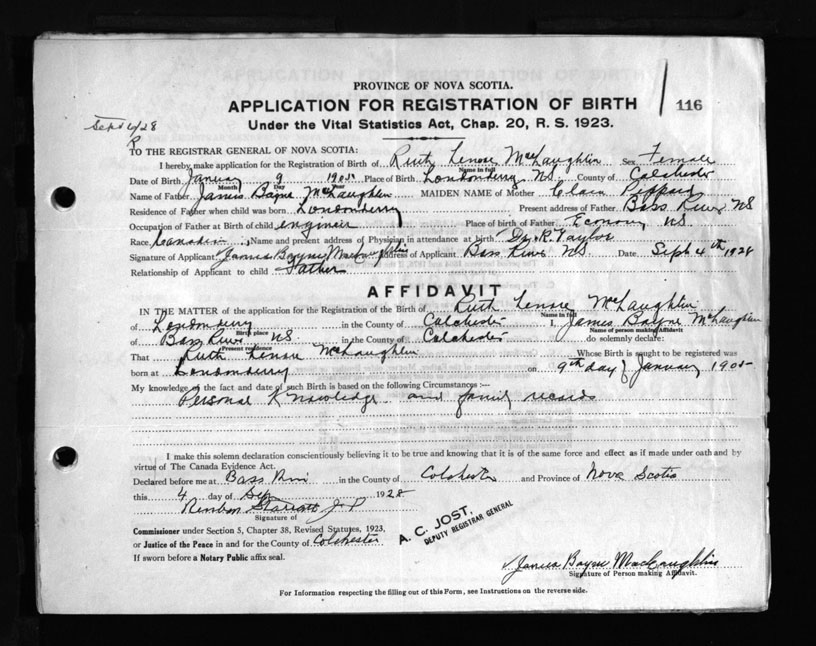 PROVINCE OF NOVA SCOTIA.
APPLICATION FOR REGISTRATION OF BIRTH
116
Under the Vital Statistics Act, Chap. 20, R. S. 1923.
Sept 6/28
TO THE REGISTRAR GENERAL OF NOVA SCOTIA:
I hereby make application for the Registration of Birth of Ruth Lenore McLaughlin Sex Female
Name in full
Date of Birth January 9 1905 Place of Birth Londonderry NS. County of Colchester
Month Day Year
Name of Father James Bayne McLaughlin MAIDEN NAME of Mother Clara Peppard
Residence of Father when child was born Londonderry Present address of Father Bass River NS
Occupation of Father at Birth of child engineer Place of birth of Father Economy NS.
Race Canadian Name and present address of Physician in attendance at birth Dr. R. Taylor
Signature of Applicant James Bayne MacLaughlin Address of Applicant Bass River NS. Date Sept 4th 1928
Relationship of Applicant to child Father
AFFIDAVIT
IN THE MATTER of the application for the Registration of the Birth of Ruth Lenore McLaughlin
Name in full
of Londonderry in the County of Colchester I, James Bayne McLaughlin
Birth place Name of person making Affidavit
of Bass River NS in the County of Colchester do solemnly declare:
Present residence
That Ruth Lenore McLaughlin Whose Birth is sought to be registered was
born at Londonderry on 9th day of January 1905
My knowledge of the fact and date of such Birth is based on the following Circumstances :—
Personal Knowledge and family records
I make this solemn declaration conscientiously believing it to be true and knowing that it is of the same force and effect as if made under oath and by
virtue of The Canada Evidence Act.
Declared before me at Bass River in the County of Colchester and Province of Nova Scotia
this 4 day of Sep 1928
J P
Signature of
A. C. JOST,
DEPUTY REGISTRAR GENERAL
Commissioner under Section 5, Chapter 38, Revised Statutes, 1923,
or Justice of the Peace in and for the County of Colchester
If sworn before a Notary Public affix seal.
James Bayne MacLaughlin
Signature of Person making Affidavit.
For Information respecting the filling out of this Form, see Instructions on the reverse side.